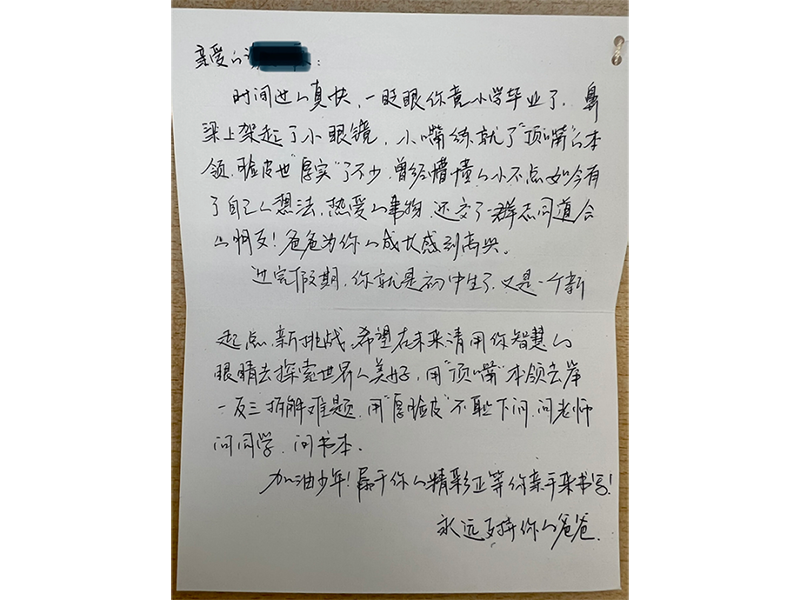 亲爱的:
时间过的真快,一眨眼你竟小学毕业了,鼻
梁上架起了小眼镜,小嘴练就了"顶嘴"的本
领,脸皮也"厚实"了不少,曾经懵懂的小不点如今有
了自己的想法,热爱的事物,还交了一群志同道合
的朋友!爸爸为你的成长感到高兴。
过完假期,你就是初中生了,又是一个新
起点,新挑战,希望在未来请用你智慧的
眼睛去探索世界的美好,用"顶嘴"本领去举
一反三拆解难题,用"厚脸皮"不耻下问,问老师
问同学,问书本。
加油少年!属于你的精彩正等你亲手来书写!
永远支持你的爸爸.